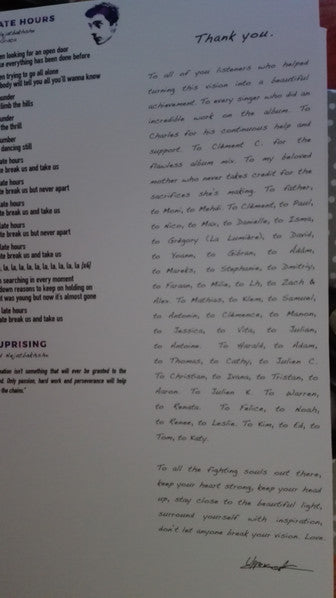 ATE HOURS
en looking for an open door
se everything has been done before
en trying to go all alone
body will tell you all you'll wanna know
under
limb the hills
under
the thrill
number
dancing still
late hours
te break us and take us
late hours
te break us but never apart
late hours
te break us and take us
late hours
te break us but never apart
late hours
te break us and take us
la, la, la, la, la, la, la, la, la, la
n searching in every moment
down reasons to keep on holding on
t was young but now it's almost gone
late hours
te break us and take us
UPRISING
ation isn't something that will ever be granted to the
ed. Only passion, hard work and perseverance will help
the chains."
Thank you.
To all of you listeners who helped
turning this vision into a beautiful
achievement. To every singer who did an
incredible work on the album. To
Charles for his continuous help and
support. To Clément C. for the
flawless album mix. To my beloved
mother who never takes credit for the
sacrifices she's making. To father,
to Moni, to Mehdi. To Clément, to Paul,
to Nico, to Max, to Danielle, to Isma,
to Grégory (La Lumière), to David,
to Yoann, to Gibran, to Adam,
to Mareks, to Stephanie, to Dmitriy,
to Faraon, to Mila, to Lh, to Zach &
Alex. To Mathias, to Klem, to Samuel,
to Antonin, to Clémence, to Manon,
to Jessica, to Vita, to Julian,
to Antoine. To Harald, to Adam,
to Thomas, to Cathy, to Julien C.
To Christian, to Ivana, to Tristan, to
Aaron. To Julien K. To Warren,
to Renata. To Felice, to Noah,
to Renee, to Leslie. To Kim, to Ed, to
Tom, to Katy.
To all the fighting souls out there,
keep your heart strong, keep your head
up, stay close to the beautiful light,
surround yourself with inspiration,
don't let anyone break your vision. Love.